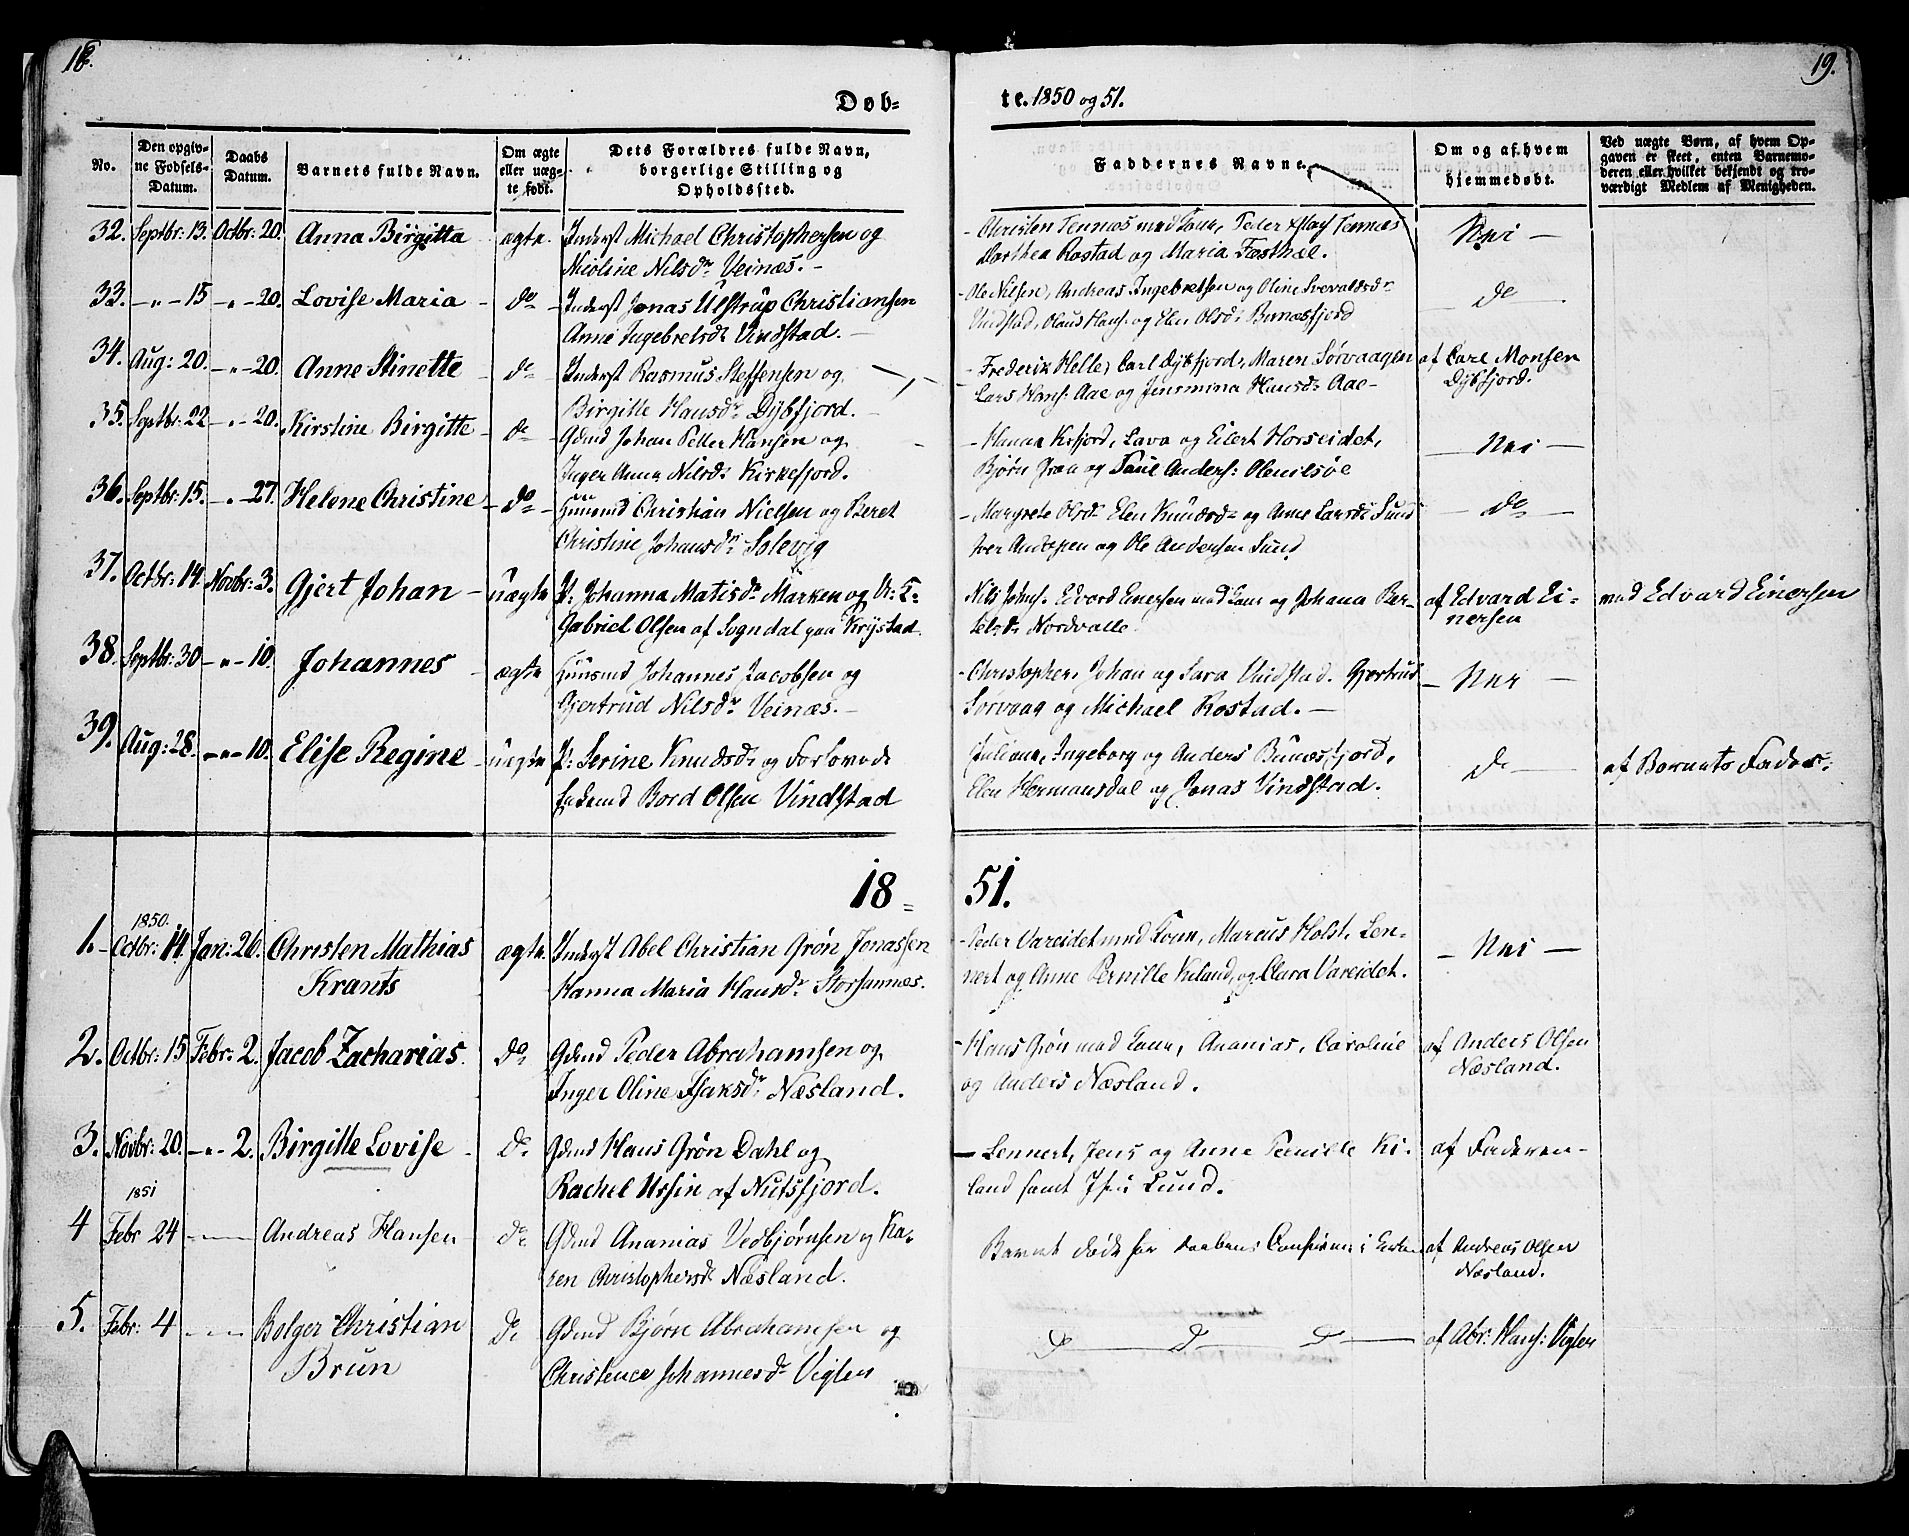 18.
19.
Døb=
te. 1850 og 51.
No.
Den opgiv-
ne Fødsels-
Datum.
Daabs
Datum.
Barnets fulde Navn.
Om ægte
eller uæg-
te født.
Dets Forældres fulde Navn,
borgerlige Stilling og
Opholdssted.
Faddernes Navne.
Om og af hvem
hjemmedøbt.
Ved uægte Børn, af hvem Op-
gaven er skeet, enten Barnemo-
deren eller hvilket bekjendt og tro-
værdigt Medlem af Menigheden.
32. Septbr: 13. Octbr: 20. Anna Birgitta ægte. Inderst Michael Christophersen og
Nicoline Nilsdr Veinæs. -
- Christen Tennæs med Kone, Peder Tennæs
Dorthea Rostad og Maria Festhæl.
Nei -
33. - " - 15 - " - 20. Lovise Maria - do - Inderst Jonas Ulstrup Christiansen
Anne Ingebretsdr Vindstad. -
- Ole Nilsen, Andreas Ingebretsen og Oline Sivaldsdr
Vindstad, Olaus Hans. og Elen Olsdr Bunæsfjord
do
34. Aug: 20. - " - 20. Anne Stinette - do - Inderst Rasmus Steffensen og
Birgitte Hansdr Dybfjord. -
- Frederik Helle, Carl Dybfjord, Maren Sørvaagen
Lars Hans: Aae og Jensmina Hansdr Aae -
af Carl Monsen
Dybfjord.
35. Septbr: 22 - " - 20. Kirstine Birgitte - do - Gdmd Johan Petter Hansen og
Inger Anna Nilsdr Kirkefjord.
Lava og Eilert Horseidet,
Bjørn og Paul Anders: Olenilsøe
- Nei -
36. Septbr: 15. - " - 27. Helene Christine - do - Huusmd Christian Nielsen og Beret
Christine Johansdr Solevig
- Margrete Olsdr Elen Knudsdr og Anne Larsdr Sund
Iver Andersen og Ole Andersen Sund
- do -
37. Octbr: 14. Novbr: 3. Gjert Johan - uægte P: Johanna Matisdr Marken og U: K:
Gabriel Olsen af Sogndal paa Krystad.
Nils Johns. Edvard Einersen med Kone og Johana Ber-
telsdr Nordvalle.
af Edvard Ei-
nersen
med Edvard Einersen
38. Septbr: 30 - " - 10. Johannes - ægte Huusmd Johannes Jacobsen og
Gjertrud Nilsdr Veinæs. -
- Christopher, Johan og Sara Vindstad. Gjertrud
Sørvaag og Michael Rostad. -
- Nei -
39. Aug: 28. - " - 10. Elise Regine - uægte P: Serine Knudsdr og Forlovede
Bord Olsen Vindstad
Juliana, Ingeborg og Anders Bunæsfjord,
Elen Hermansdal og Jonas Vindstad.
do -
af Barnets Fader:
18 = 51.
1. - 1850. Octbr: 14. Jan: 26. Christen Mathias
Krants
ægte. Inderst Abel Christian Grøn Jonassen
Hanna Maria Hansdr Storsannæs.
- Peder Vareidet med Kone, Marcus Holst, Len-
nert og Anne Pernille Kiland, og Clara Vareidet.
- Nei -
2. Octbr: 15 Febr: 2. Jacob Zacharias. do Gdmd Peder Abrahamsen og
Inger Oline Isaksdr Næsland.
- Hans Grøn med Kone, Ananias, Caroline
og Anders Næsland.
af Anders Olsen
Næsland.
3. Novbr: 20. - " - 2. Birgitte Lovise - do Gdmd Hans Grøn Dahl og
Rachel Ursin af Nutsfjord.
- Lennert, Jens og Anne Pernille Ki-
land samt Lund.
af Faderen -
4 1851 Febr 24 Andreas Hansen - do Gdmd Ananias Vedbjørnsen og Ka-
ren Christophersdr Næsland.
Barnet døde før Daabens i Kirken
af Andreas Olsen
Næsland.
5. Febr: 4 - " - Bolger Christian
Brun
do Gdmd Bjørn Abrahamsen og
Christence Johannesdr Vigten
do do do
af Abr: Hans: Vigten